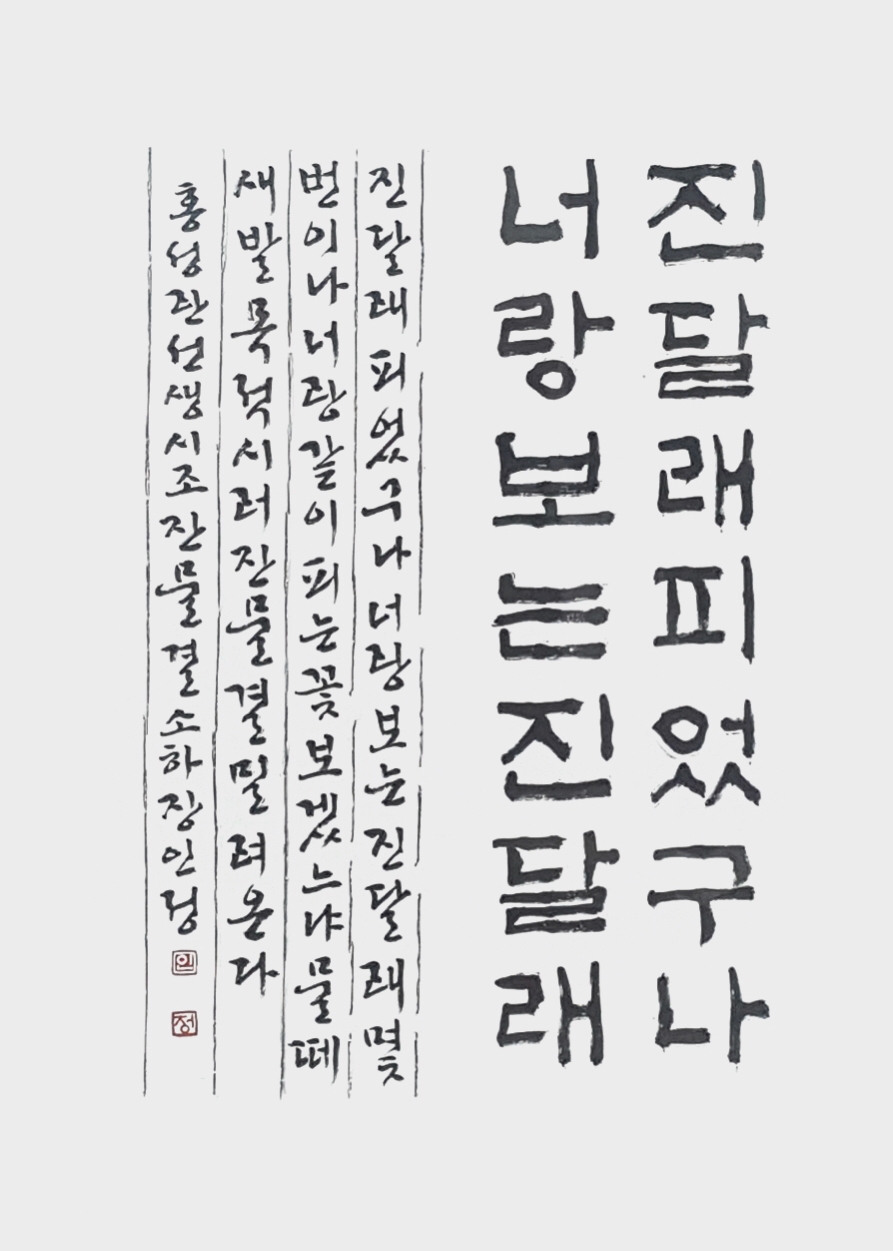 진달래피었구나
너랑보는진달래
진달래피었구나너랑보는진달래몇
번이나너랑같이피는꽃보겠느냐물떼
새발목적시러잔물결밀려온다
홍성란선생시조잔물결소하장인정
인
정